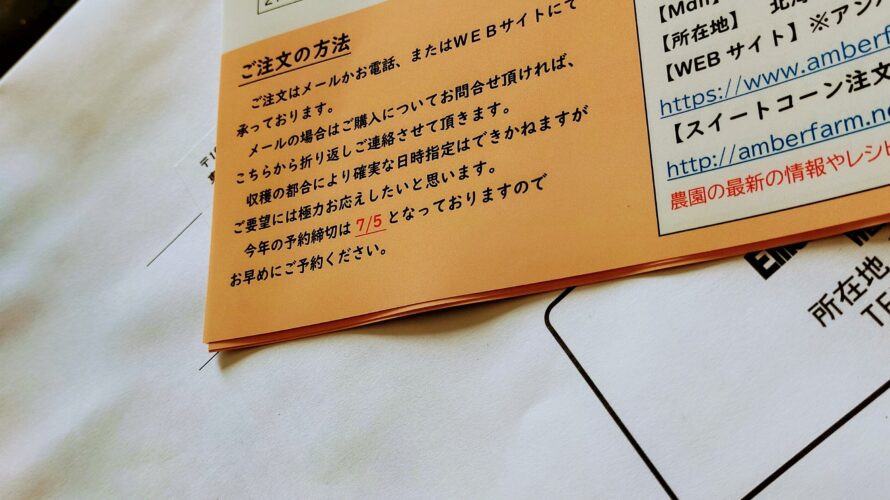 ご注文の方法
ご注文はメールかお電話、またはＷＥＢサイトにて
承っております。
メールの場合はご購入についてお問合せ頂ければ、
こちらから折り返しご連絡させて頂きます。
収穫の都合により確実な日時指定はできかねますが
ご要望には極力お応えしたいと思います。
今年の予約締切は 7/5 となっておりますので
お早めにご予約ください。
【Mail
【所在地】 北海
【WEB サイト】※アン
https://www.amberf
【スイートコーン注文
http://amberfarm.ne
農園の最新の情報やレシピ
EM
所在地
TE